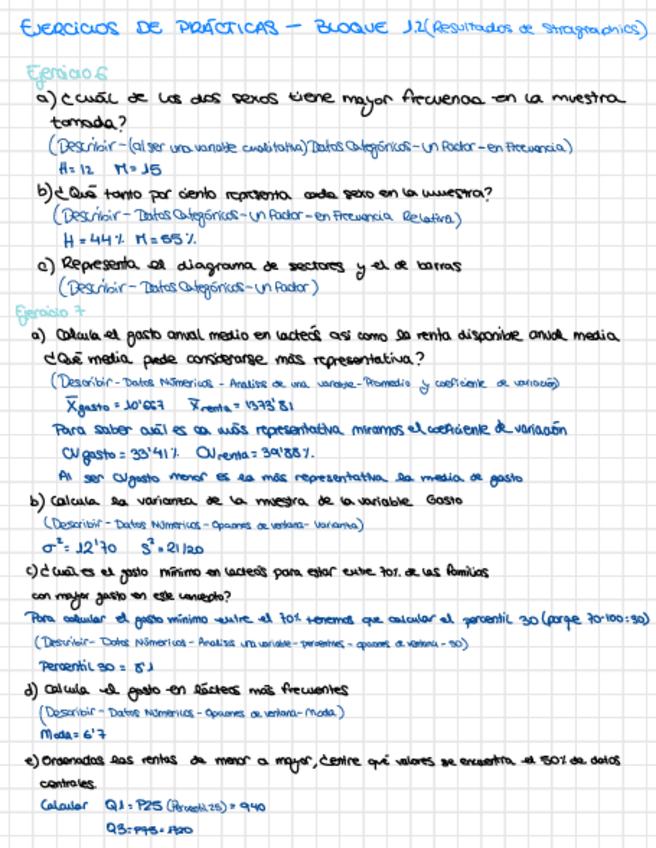 EJERCICIOS DE PRÁCTICAS - BLOQUE 1.2 (Resultados de Stragraphics)
Ejercicio 6
a) ¿Cuál de los dos sexos tiene mayor frecuencia en la muestra
tomada?
(Describir - (al ser una variable cualitativa) Datos Categóricos - Un Factor - en Frecuencia)
H = 12 M = 15
b) ¿Qué tanto por ciento representa cada sexo en la muestra?
(Describir - Datos Categóricos - Un Factor - en Frecuencia Relativa)
H = 44% M = 55%
c) Representa el diagrama de sectores y el de barras
(Describir - Datos Categóricos - Un Factor)
Ejercicio 7
a) Calcula el gasto anual medio en lacteos así como la renta disponible anual media
¿Qué media puede considerarse más representativa?
(Describir - Datos Númericos - Analisis de una variable - Promedio y coeficiente de variación)
X̄gasto = 10'667 X̄renta = 1373'81
Para saber cuál es la más representativa miramos el coeficiente de variación
CV gasto = 33'41% CV renta = 39'88%
Al ser CVgasto menor es la más representativa la media de gasto
b) Calcula la varianza de la muestra de la variable Gasto
(Describir - Datos Númericos - Opciones de ventana - Varianza)
σ² = 12'70 S² = 21/20
c) ¿Cuál es el gasto mínimo en lacteos para estar entre 70% de las familias
con mayor gasto en este concepto?
Para calcular el gasto mínimo entre el 70% tenemos que calcular el percentil 30 (porqe 70-100=30)
(Describir - Datos Númericos - Analisis una variable - percentiles - opciones de ventana - 30)
Percentil 30 = 8'1
d) Calcula el gasto en lácteos más frecuentes
(Describir - Datos Númericos - Opciones de ventana - Moda)
Moda = 6'7
e) Ordenadas las rentas de menor a mayor, ¿entre qué valores se encuentra el 50% de datos
centrales.
Calcular Q1 = P25 (Percentil 25) = 940
Q3 = P75 = 1720